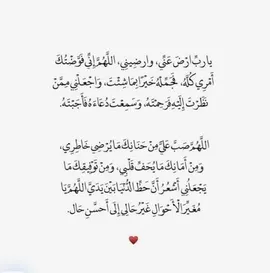 يارب ارْضَ عَنِّي، وارضِيني، اللَّهُمَّ إِنِّي فَوَّضْتُكَ
أَمْرِي كُلَّهُ، فَجَمِّلهُ خَيْرًا بِمَا شِئْتَ، وَاجْعَلْنِي مِمَّنْ
نَظَرْتَ إِلَيْهِ فَرَحِمْتَهُ، وَسَمِعْتَ دُعَاءَهُ فَأَجَبْتَهُ.
اللَّهُمَّ صُبَّ عَلَيَّ مِنْ حَنَانِكَ مَا يُرْضِي خَاطِرِي،
وَمِنْ أَمَانِكَ مَا يُحَفّ قَلْبِي، وَمِنْ تَوْفِيقِكَ مَا
يَجْعَلُنِي أَشْعُرُ أَنَّ حَظَّ الدُّنْيَا بَيْنَ يَدَيَّ اللَّهُمَّ يَا
مُغَيِّرَ الْأَحْوَالِ غَيِّرْ حَالِي إِلَى أَحْسَنِ حَال.